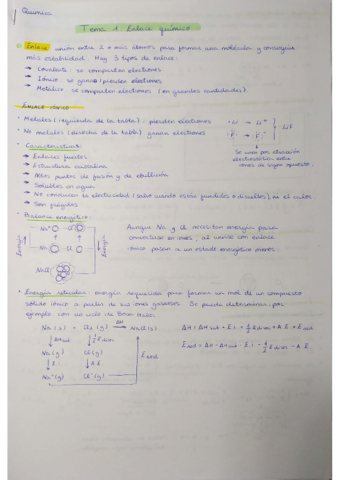 Química
Tema 1: Enlace químico
Enlace: unión entre 2 o más átomos para formar una molécula y conseguir
más estabilidad. Hay 3 tipos de enlace:
→ Covalente: se comparten electrones
→ Iónico: se ganan/pierden electrones
→ Metálico: se comparten electrones (en grandes cantidades)
Enlace iónico
• Metales (izquierda de la tabla): pierden electrones
• No metales (derecha de la tabla): ganan electrones
Li → Li⁺
F → F⁻
LiF
Se unen por atracción
electrostática entre
iones de signo opuesto.
• Características:
→ Enlaces fuertes
→ Estructura cristalina
→ Altos puntos de fusión y de ebullición
→ Solubles en agua
→ No conducen la electricidad (salvo cuando están fundidos o disueltos), ni el calor
→ Son frágiles
• Balance energético:
Energía
Na⁺ Cl⁻
Na Cl
NaCl
Energía
Aunque Na y Cl necesitan energía para
convertirse en iones, al unirse con enlace
iónico pasan a un estado energético menor.
• Energía reticular: energía requerida para formar un mol de un compuesto
sólido iónico a partir de sus iones gaseosos. Se puede determinar, por
ejemplo, con un ciclo de Born Haber:
Na (s) + Cl₂ (g) →ΔH NaCl (s)
↓ ΔHsub ↓ ½ Edisoc
Na (g) Cl (g)
↓ E.i. ↓ A.E.
Na⁺ (g) Cl⁻ (g)
Ered
ΔH = ΔHsub + E.i. + ½ Edisoc + A.E. + Ered
Ered = ΔH - ΔHsub - E.i. - ½ Edisoc - A.E.